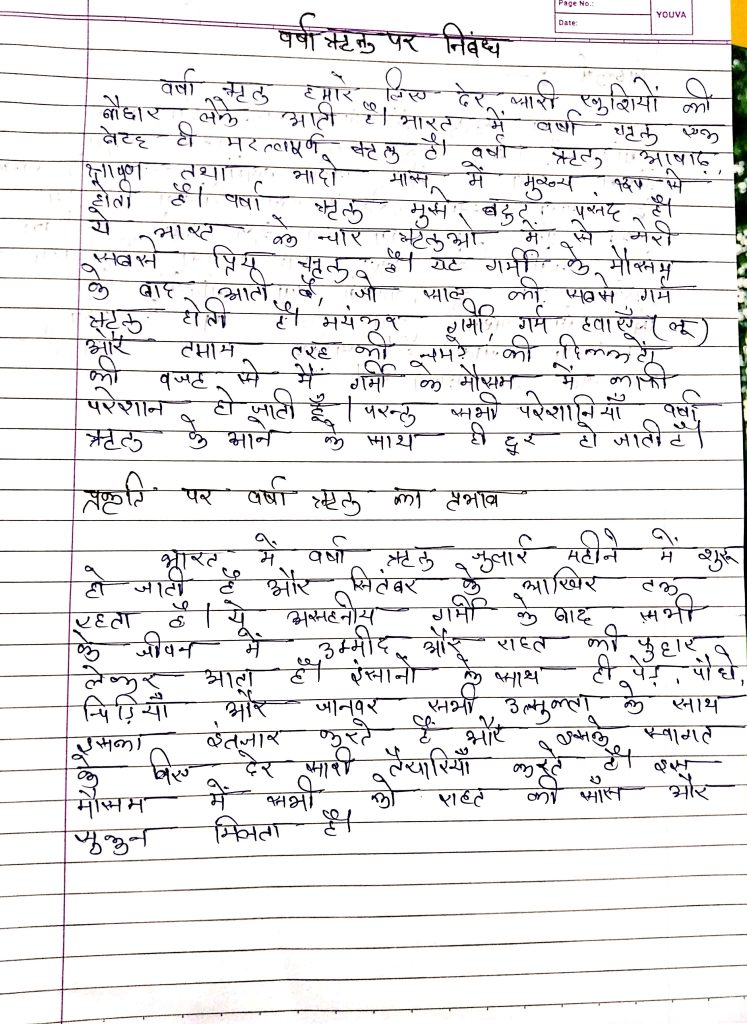 Page No.:
Date:
YOUVA
वर्षा ऋतु पर निबंध
वर्षा ऋतु हमारे लिए ढेर सारी खुशियों की
बौछार लेके आती है। भारत में वर्षा ऋतु एक
बेहद ही महत्वपूर्ण ऋतु है। वर्षा ऋतु आषाढ़,
श्रावण तथा भादो मास में मुख्य रूप से
होती है। वर्षा ऋतु मुझे बहुत पसंद है।
ये भारत के चार ऋतुओं में से मेरी
सबसे प्रिय ऋतु है। यह गर्मी के मौसम
के बाद आती है, जो साल की सबसे गर्म
ऋतु होती है। भयंकर गर्मी, गर्म हवाएँ (लू)
और तमाम तरह की चमड़े की दिक्कतों
की वजह से मैं गर्मी के मौसम में काफी
परेशान हो जाती हूँ। परन्तु सभी परेशानियाँ वर्षा
ऋतु के आने के साथ ही दूर हो जाती है।
प्रकृति पर वर्षा ऋतु का प्रभाव
भारत में वर्षा ऋतु जुलाई महीने में शुरू
हो जाती है और सितंबर के आखिर तक
रहता है। ये असहनीय गर्मी के बाद सभी
के जीवन में उम्मीद और राहत की फुहार
लेकर आता है। इंसानों के साथ ही पेड़, पौधे,
चिड़ियाँ और जानवर सभी उत्सुकता के साथ
इसका इंतजार करते हैं और इसके स्वागत
के लिए ढेर सारी तैयारियाँ करते है। इस
मौसम में सभी को राहत की साँस और
सुकुन मिलता है।